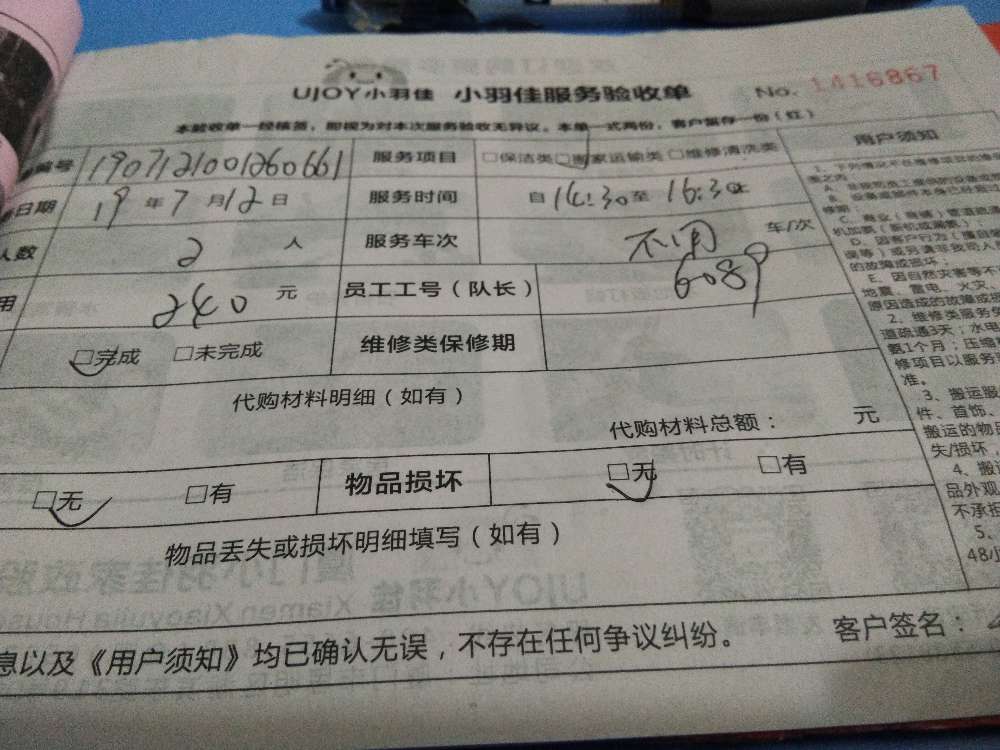 UJOY小羽佳 小羽佳服务验收单 No. 1416867
本验收单一经核签，即视为对本次服务验收无异议。本单一式两份，客户留存一份（红）
编号 1907121001260661 服务项目 □保洁类□搬家运输类□维修清洗类
日期 19年7月12日 服务时间 自14:30至16:30止
人数 2人 服务车次 不用 车/次
用 240元 员工工号（队长） 6089
□完成 □未完成 维修类保修期
代购材料明细（如有）
代购材料总额： 元
□无 □有 物品损坏 □无 □有
物品丢失或损坏明细填写（如有）
息以及《用户须知》均已确认无误，不存在任何争议纠纷。
客户签名：
用户须知
机加氨（新机或漏氨）
D、因客户行为（擅自
误等）或另请非我司人
的故障或损坏；
E、因自然灾害等不
地震、雷电、火灾、
原因造成的故障或损
2、维修类服务
道疏通3天；水电
氨1个月；压缩
修项目以服务
准。
3、搬运服
件、首饰、
搬运的物品
失/损坏，
4、搬
品外观
不承担
5、
48小